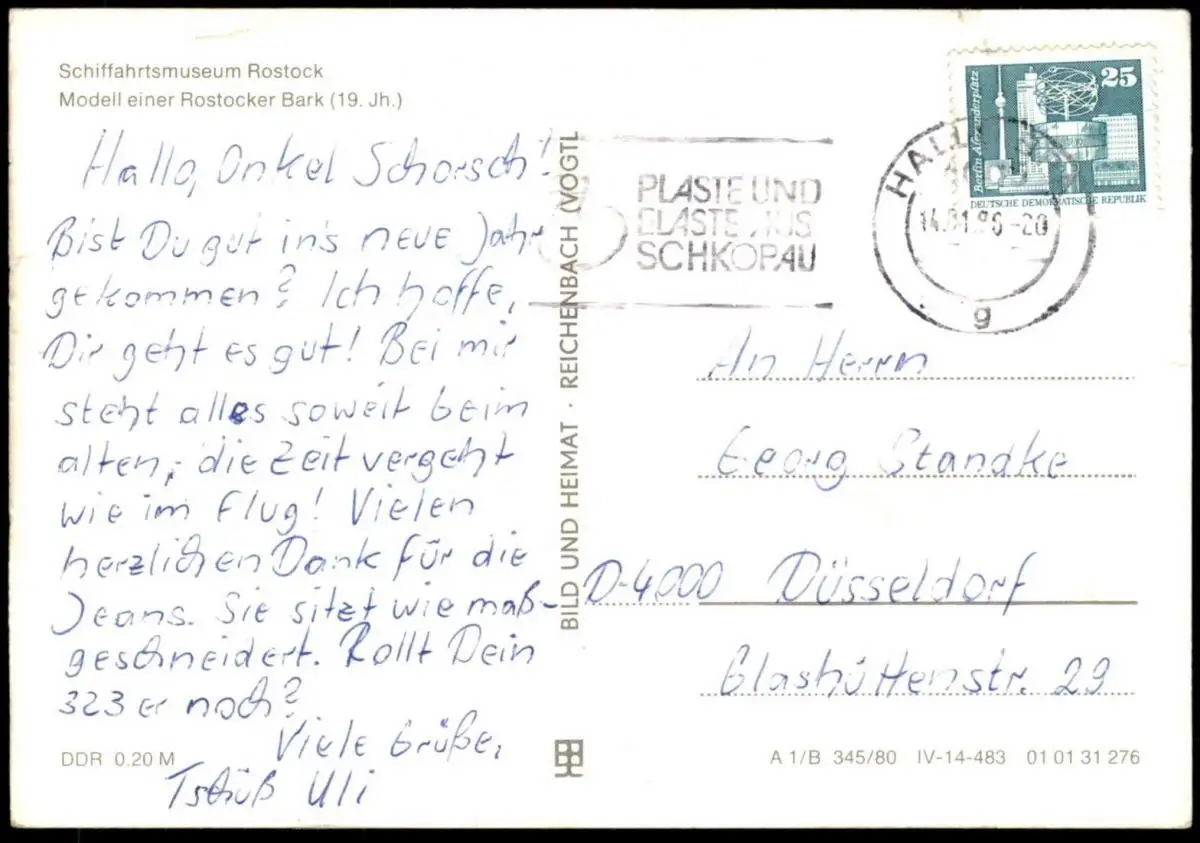 Schiffahrtsmuseum Rostock
Modell einer Rostocker Bark (19. Jh.)
Hallo, Onkel Schorsch!
Bist Du gut in's neue Jahr
gekommen? Ich hoffe,
Dir geht es gut! Bei mir
steht alles soweit beim
alten, die Zeit vergeht
wie im Flug! Vielen
herzlichen Dank für die
Jeans. Sie sitzt wie maß-
geschneidert. Rollt Dein
323er noch?
Viele Grüße,
Tschüß Uli
DDR 0.20 M
BILD UND HEIMAT · REICHENBACH (VOGTL
PLASTE UND
ELASTE AUS
SCHKOPAU
25
Berlin Alexanderplatz
DEUTSCHE DEMOKRATISCHE REPUBLIK
HALLE
14.01.86-20
g
An Herrn
Georg Standke
D-4000 Düsseldorf
Glashüttenstr. 29
A 1/B 345/80 IV-14-483 01 01 31 276